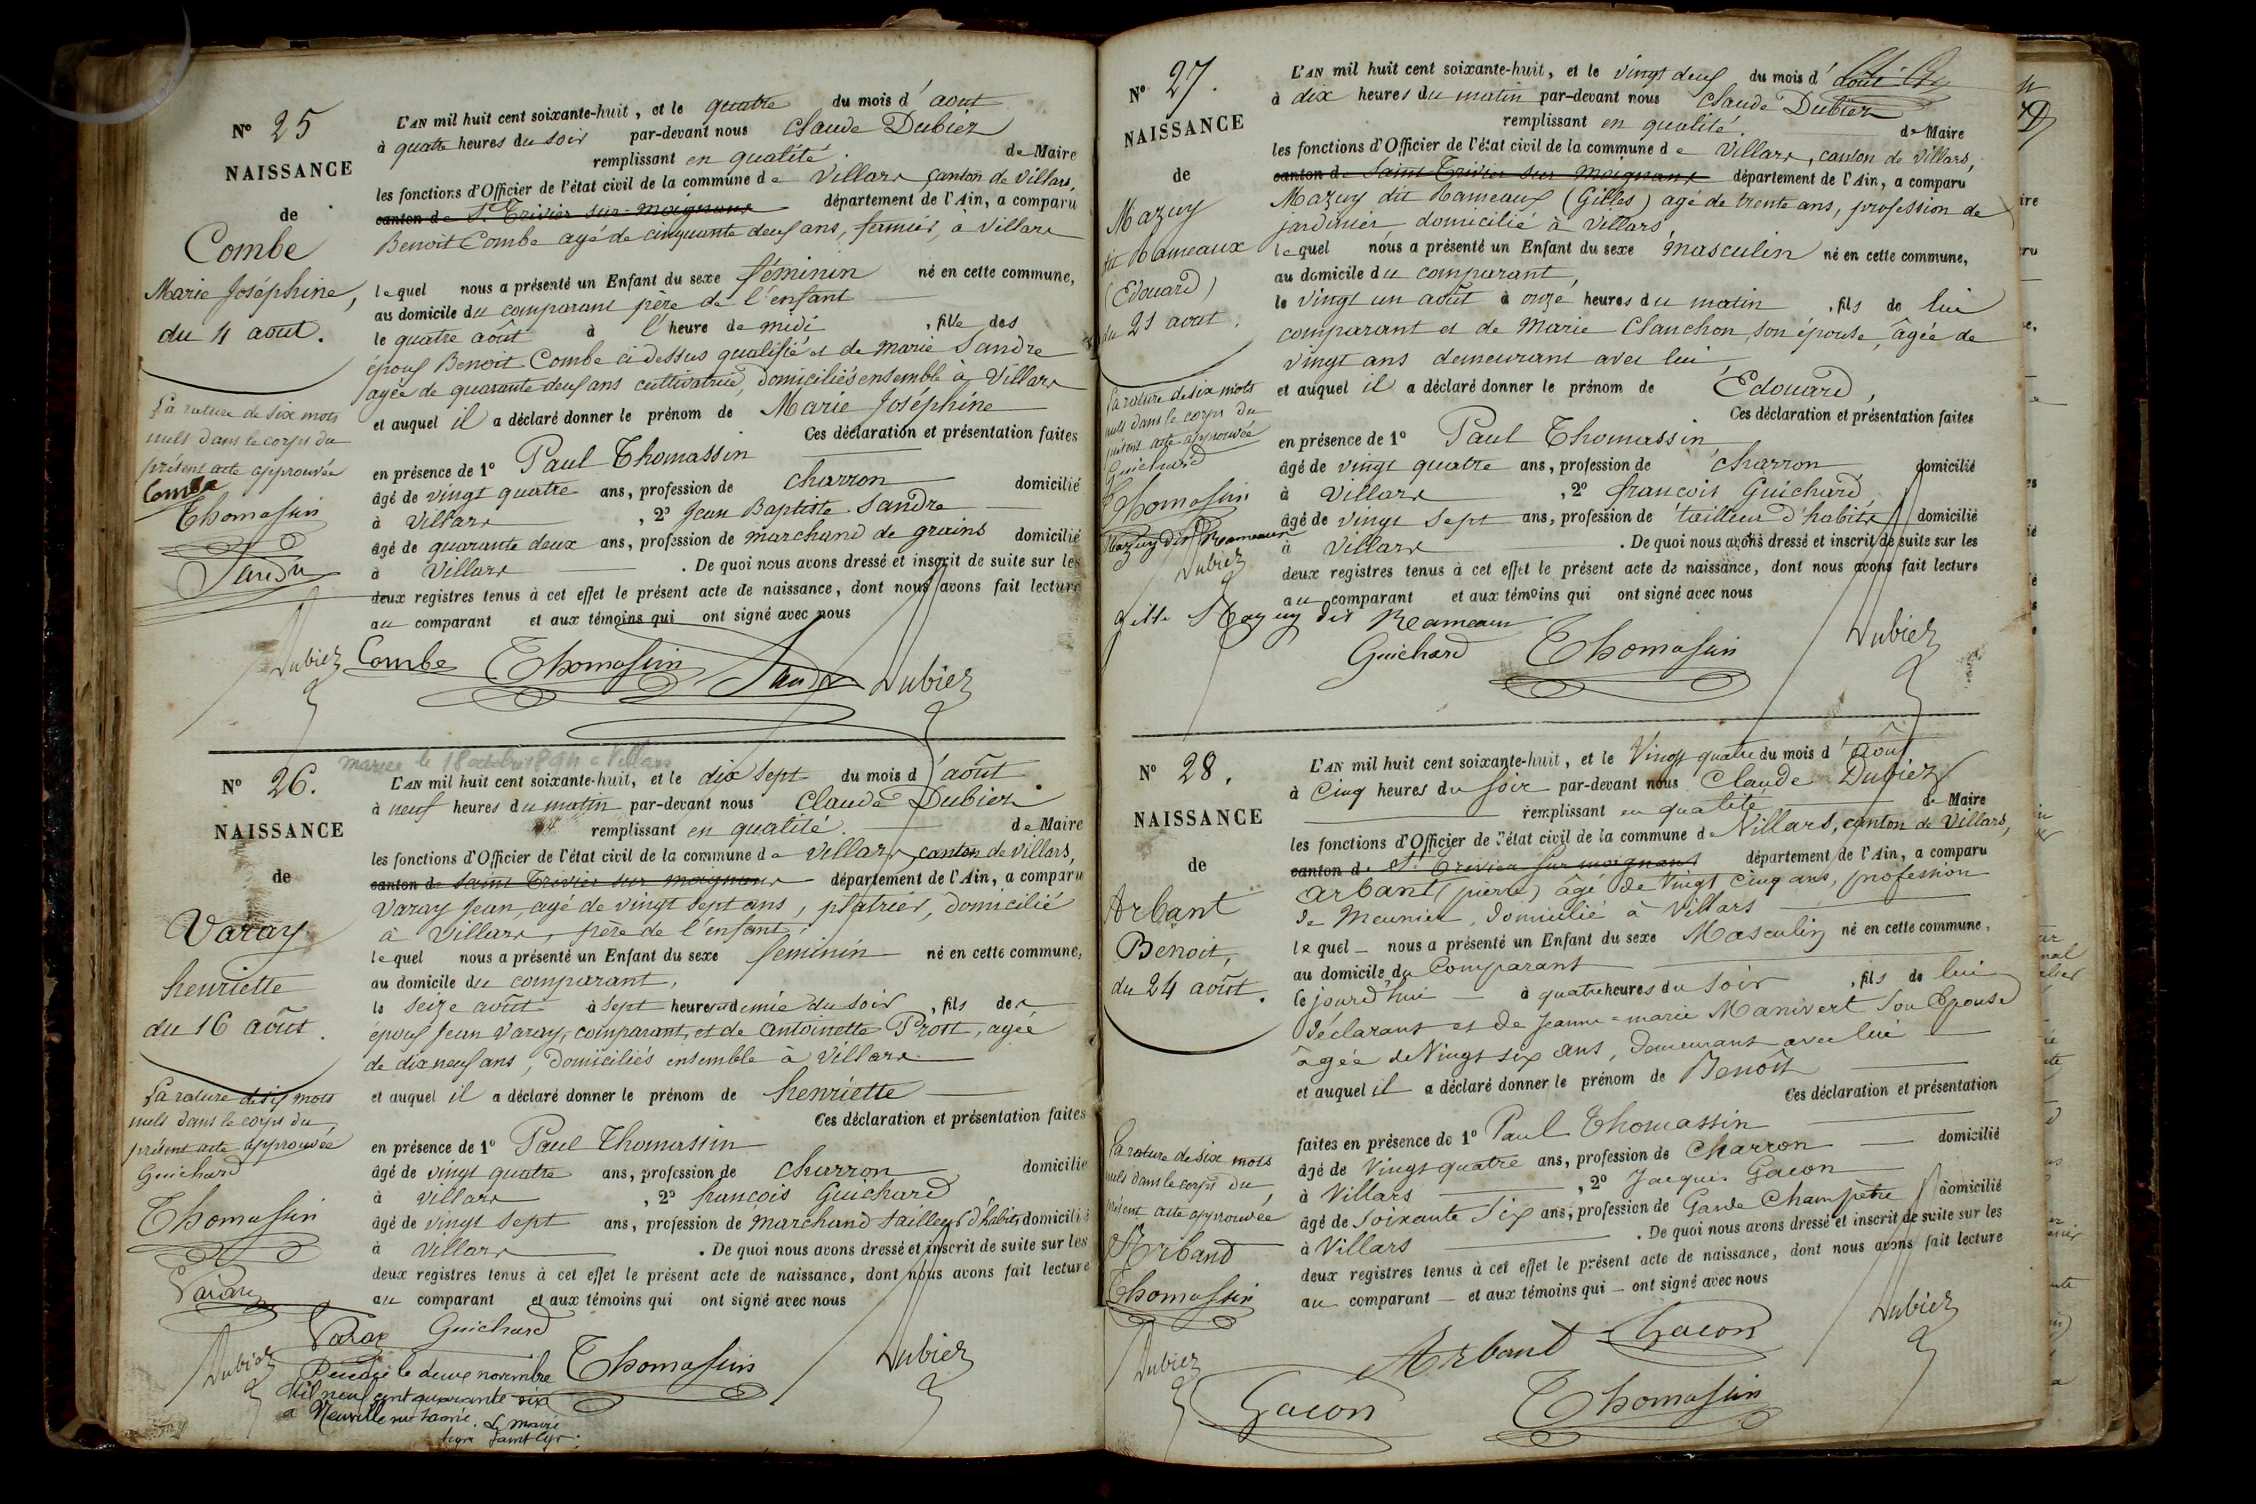 N° 25
NAISSANCE
de
Combe
Marie Joséphine,
du 4 aout.
La rature de six mots
nuls dans le corps du
présent acte approuvée
Combe
Thomassin
Sandre
Dubiez
L'AN mil huit cent soixante-huit, et le quatre du mois d'aout
à quatre heures du soir par-devant nous Claude Dubiez
remplissant en qualité de Maire
les fonctions d'Officier de l'état civil de la commune de Villars, canton de Villars,
canton de St. Trivier sur-moignans département de l'Ain, a comparu
Benoit Combe agé de cinquante deux ans, fermier, à Villars
lequel nous a présenté un Enfant du sexe féminin né en cette commune,
au domicile du comparant père de l'enfant
le quatre août à l'heure de midi, fille des
époux Benoit Combe ci-dessus qualifié et de Marie Sandre
agée de quarante deux ans cultivatrice, domiciliés ensemble à Villars
et auquel il a déclaré donner le prénom de Marie Joséphine
Ces déclaration et présentation faites
en présence de 1° Paul Thomassin
âgé de vingt quatre ans, profession de charron domicilié
à Villars, 2° Jean Baptiste Sandre
âgé de quarante deux ans, profession de marchand de grains domicilié
à Villars. De quoi nous avons dressé et inscrit de suite sur les
deux registres tenus à cet effet le présent acte de naissance, dont nous avons fait lecture
au comparant et aux témoins qui ont signé avec nous
Combe Thomassin Sandre Dubiez
mariée le 18 octobre 1894 à Villars
N° 26.
NAISSANCE
de
Varay
henriette
du 16 août.
La rature de six mots
nuls dans le corps du
présent acte approuvée
Guichard
Thomassin
Varay
Dubiez
L'AN mil huit cent soixante-huit, et le dix sept du mois d'août
à neuf heures du matin par-devant nous Claude Dubiez
remplissant en qualité de Maire
les fonctions d'Officier de l'état civil de la commune de Villars, canton de Villars,
canton de Saint Trivier sur moignans département de l'Ain, a comparu
Varay Jean, agé de vingt sept ans, platrier, domicilié
à Villars, père de l'enfant,
lequel nous a présenté un Enfant du sexe feminin né en cette commune,
au domicile du comparant,
le seize août à sept heures et demie du soir, fils des
époux Jean Varay, comparant, et de Antoinette Prost, agée
de dix neuf ans, domiciliés ensemble à Villars
et auquel il a déclaré donner le prénom de henriette
Ces déclaration et présentation faites
en présence de 1° Paul Thomassin
âgé de vingt quatre ans, profession de charron domicilié
à Villars, 2° francois Guichard
âgé de vingt sept ans, profession de marchand tailleur d'habits domicilié
à Villars. De quoi nous avons dressé et inscrit de suite sur les
deux registres tenus à cet effet le présent acte de naissance, dont nous avons fait lecture
au comparant et aux témoins qui ont signé avec nous
Varay Guichard
Thomassin Dubiez
Décédée le deux novembre
Mil neuf cent quarante six
à Neuville
N° 27.
NAISSANCE
de
Mazuy
dit Rameaux
(Edouard)
du 21 aout.
La rature de six mots
nuls dans le corps du
présent acte approuvée
Guichard
Thomassin
Mazuy dit Rameaux
Dubiez
L'AN mil huit cent soixante-huit, et le vingt deux du mois d'août
à dix heures du matin par-devant nous Claude Dubiez
remplissant en qualité de Maire
les fonctions d'Officier de l'état civil de la commune de Villars, canton de Villars,
canton de Saint Trivier sur moignans département de l'Ain, a comparu
Mazuy dit Rameaux (Gilles) agé de trente ans, profession de
jardinier domicilié à Villars
lequel nous a présenté un Enfant du sexe masculin né en cette commune,
au domicile du comparant,
le vingt un août à onze heures du matin, fils de lui
comparant et de Marie Clanchon, son épouse, âgée de
vingt ans demeurant avec lui
et auquel il a déclaré donner le prénom de Edouard,
Ces déclaration et présentation faites
en présence de 1° Paul Thomassin
âgé de vingt quatre ans, profession de charron domicilié
à Villars, 2° francois Guichard,
âgé de vingt sept ans, profession de tailleur d'habits domicilié
à Villars. De quoi nous avons dressé et inscrit de suite sur les
deux registres tenus à cet effet le présent acte de naissance, dont nous avons fait lecture
au comparant et aux témoins qui ont signé avec nous
gille Mazuy dit Rameaux
Guichard Thomassin Dubiez
N° 28.
NAISSANCE
de
Arbant
Benoit,
du 24 août.
La rature de six mots
nuls dans le corps du
présent acte approuvée
Arband
Thomassin
Dubiez
Gacon
L'AN mil huit cent soixante-huit, et le Vingt quatre du mois d'août
à Cinq heures du soir par-devant nous Claude Dubiez
remplissant en qualité de Maire
les fonctions d'Officier de l'état civil de la commune de Villars, canton de Villars,
canton de St Trivier sur moignans département de l'Ain, a comparu
Arbant (pierre) âgé de Vingt cinq ans, profession
de Meunier, domicilié à Villars
lequel nous a présenté un Enfant du sexe Masculin né en cette commune,
au domicile du Comparant
le jourd'hui à quatre heures du soir, fils de lui
déclarant et de Jeanne-marie Manivert son Epouse
âgée de Vingt six ans, demeurant avec lui
et auquel il a déclaré donner le prénom de Benoît
Ces déclaration et présentation
faites en présence de 1° Paul Thomassin
âgé de Vingt quatre ans, profession de Charron domicilié
à Villars, 2° Jacques Gacon
âgé de soixante six ans, profession de Garde Champêtre domicilié
à Villars. De quoi nous avons dressé et inscrit de suite sur les
deux registres tenus à cet effet le présent acte de naissance, dont nous avons fait lecture
au comparant et aux témoins qui ont signé avec nous
Arband Gacon Dubiez
Thomassin